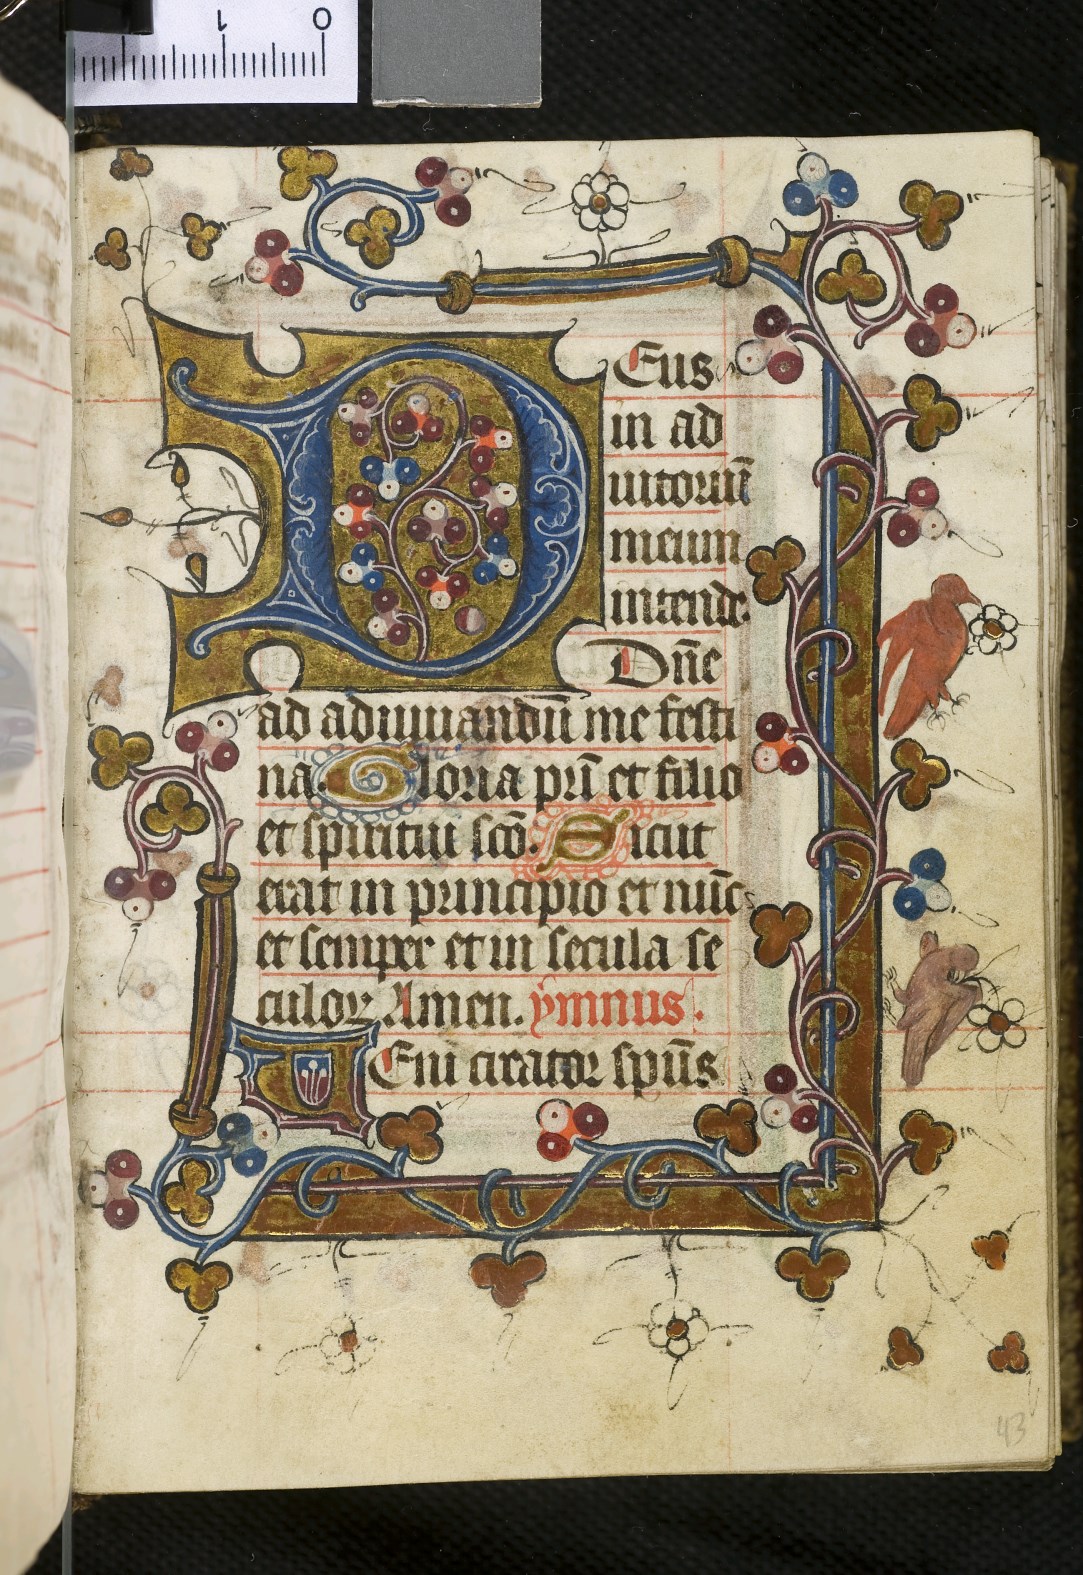 0 1
DEus
in ad
iutoriu̅
meum
intende.
Dn̅e
ad adiuuandu̅ me festi
na. Gloria pr̅i et filio
et spiritui sc̅o. Sicut
erat in principio et nu̅c
et semper et in secula se
culoꝝ Amen. ẏmnus.
UEni creator sp̅us
43